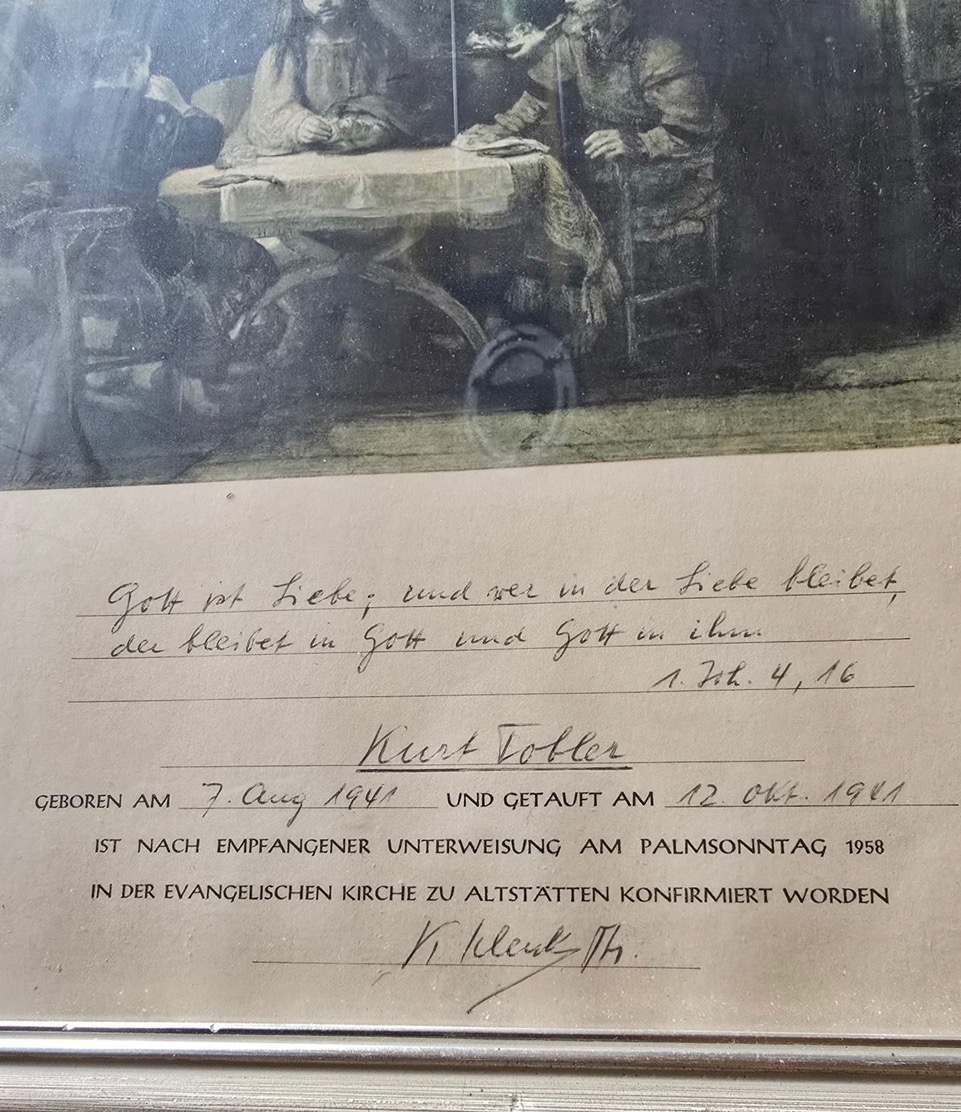 Gott ist Liebe; und wer in der Liebe bleibet,
der bleibet in Gott und Gott in ihm.
1. Joh. 4, 16
Kurt Tobler
GEBOREN AM 7. Aug 1941 UND GETAUFT AM 12. Okt. 1941
IST NACH EMPFANGENER UNTERWEISUNG AM PALMSONNTAG 1958
IN DER EVANGELISCHEN KIRCHE ZU ALTSTÄTTEN KONFIRMIERT WORDEN